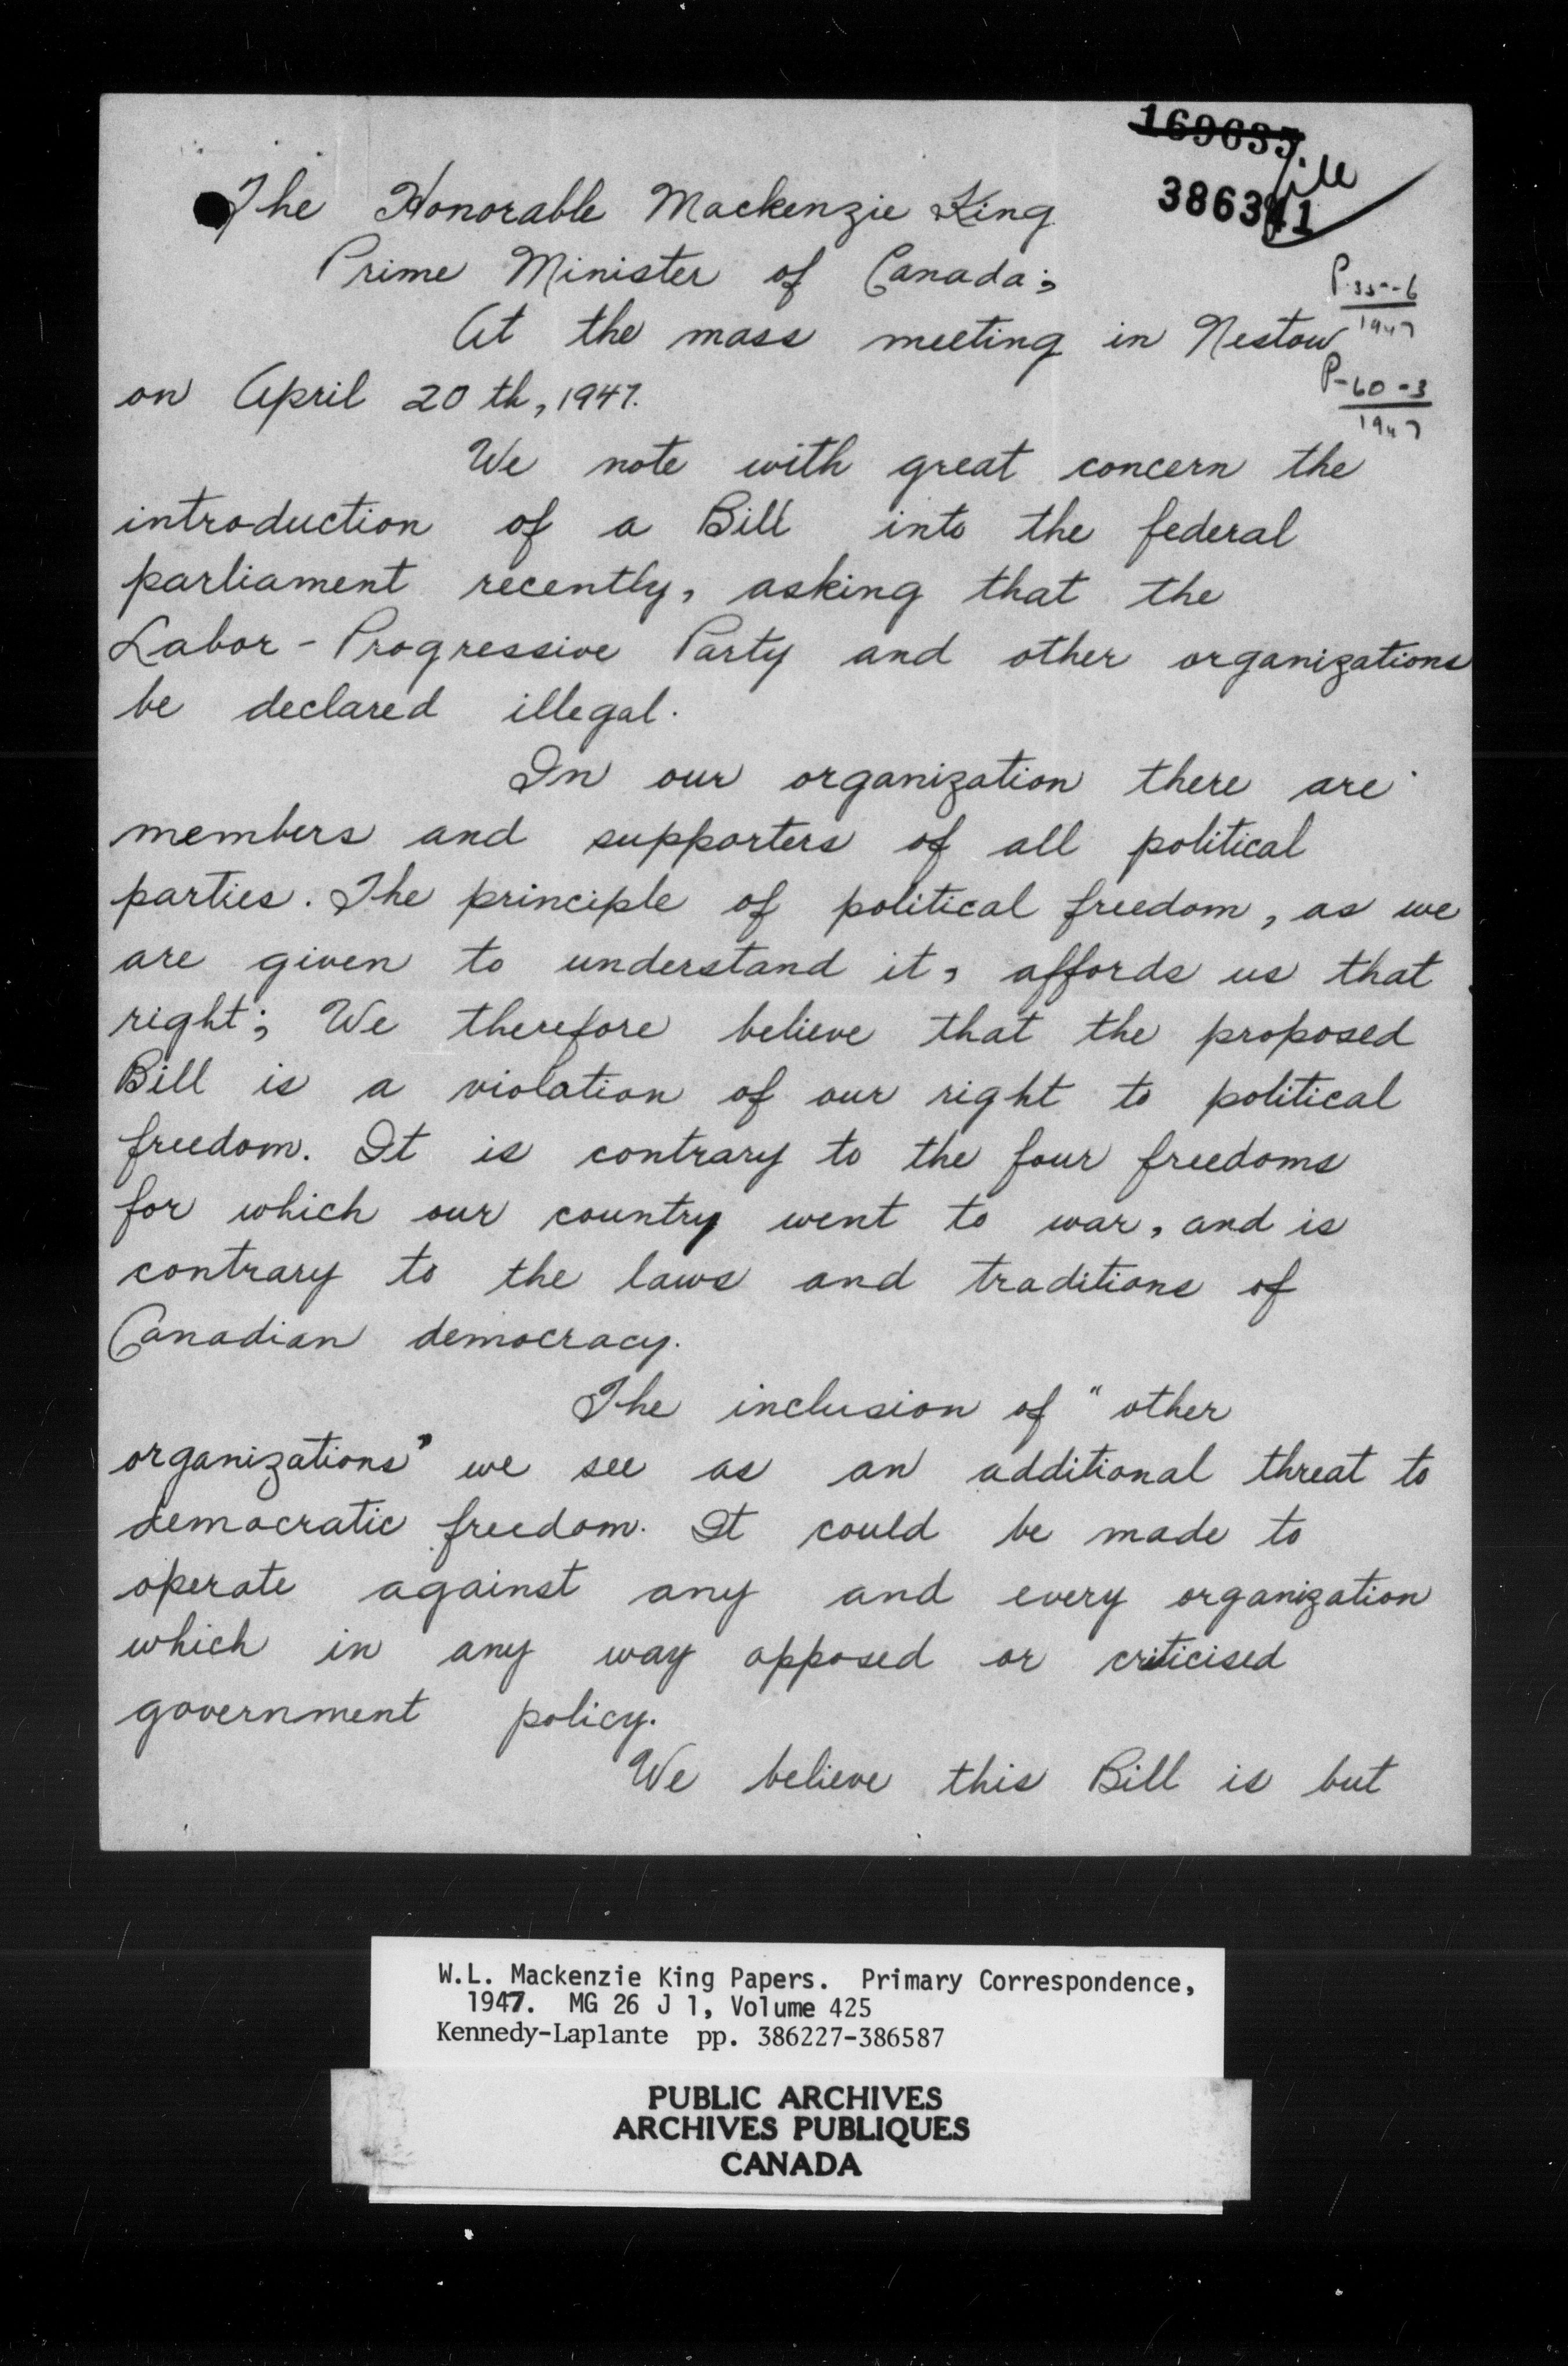 169635
file
386341
The Honorable Mackenzie King
Prime Minister of Canada;
P-35--6
1947
At the mass meeting in Nestow
on April 20 th, 1947.
P-60-3
1947
We note with great concern the
introduction of a Bill into the federal
parliament recently, asking that the
Labor-Progressive Party and other organizations
be declared illegal.
In our organization there are
members and supporters of all political
parties. The principle of political freedom, as we
are given to understand it, affords us that
right; We therefore believe that the proposed
Bill is a violation of our right to political
freedom. It is contrary to the four freedoms
for which our country went to war, and is
contrary to the laws and traditions of
Canadian democracy.
The inclusion of "other
organizations" we see as an additional threat to
democratic freedom. It could be made to
operate against any and every organization
which in any way opposed or criticised
government policy.
We believe this Bill is but
W.L. Mackenzie King Papers. Primary Correspondence,
1947. MG 26 J 1, Volume 425
Kennedy-Laplante pp. 386227-386587
PUBLIC ARCHIVES
ARCHIVES PUBLIQUES
CANADA